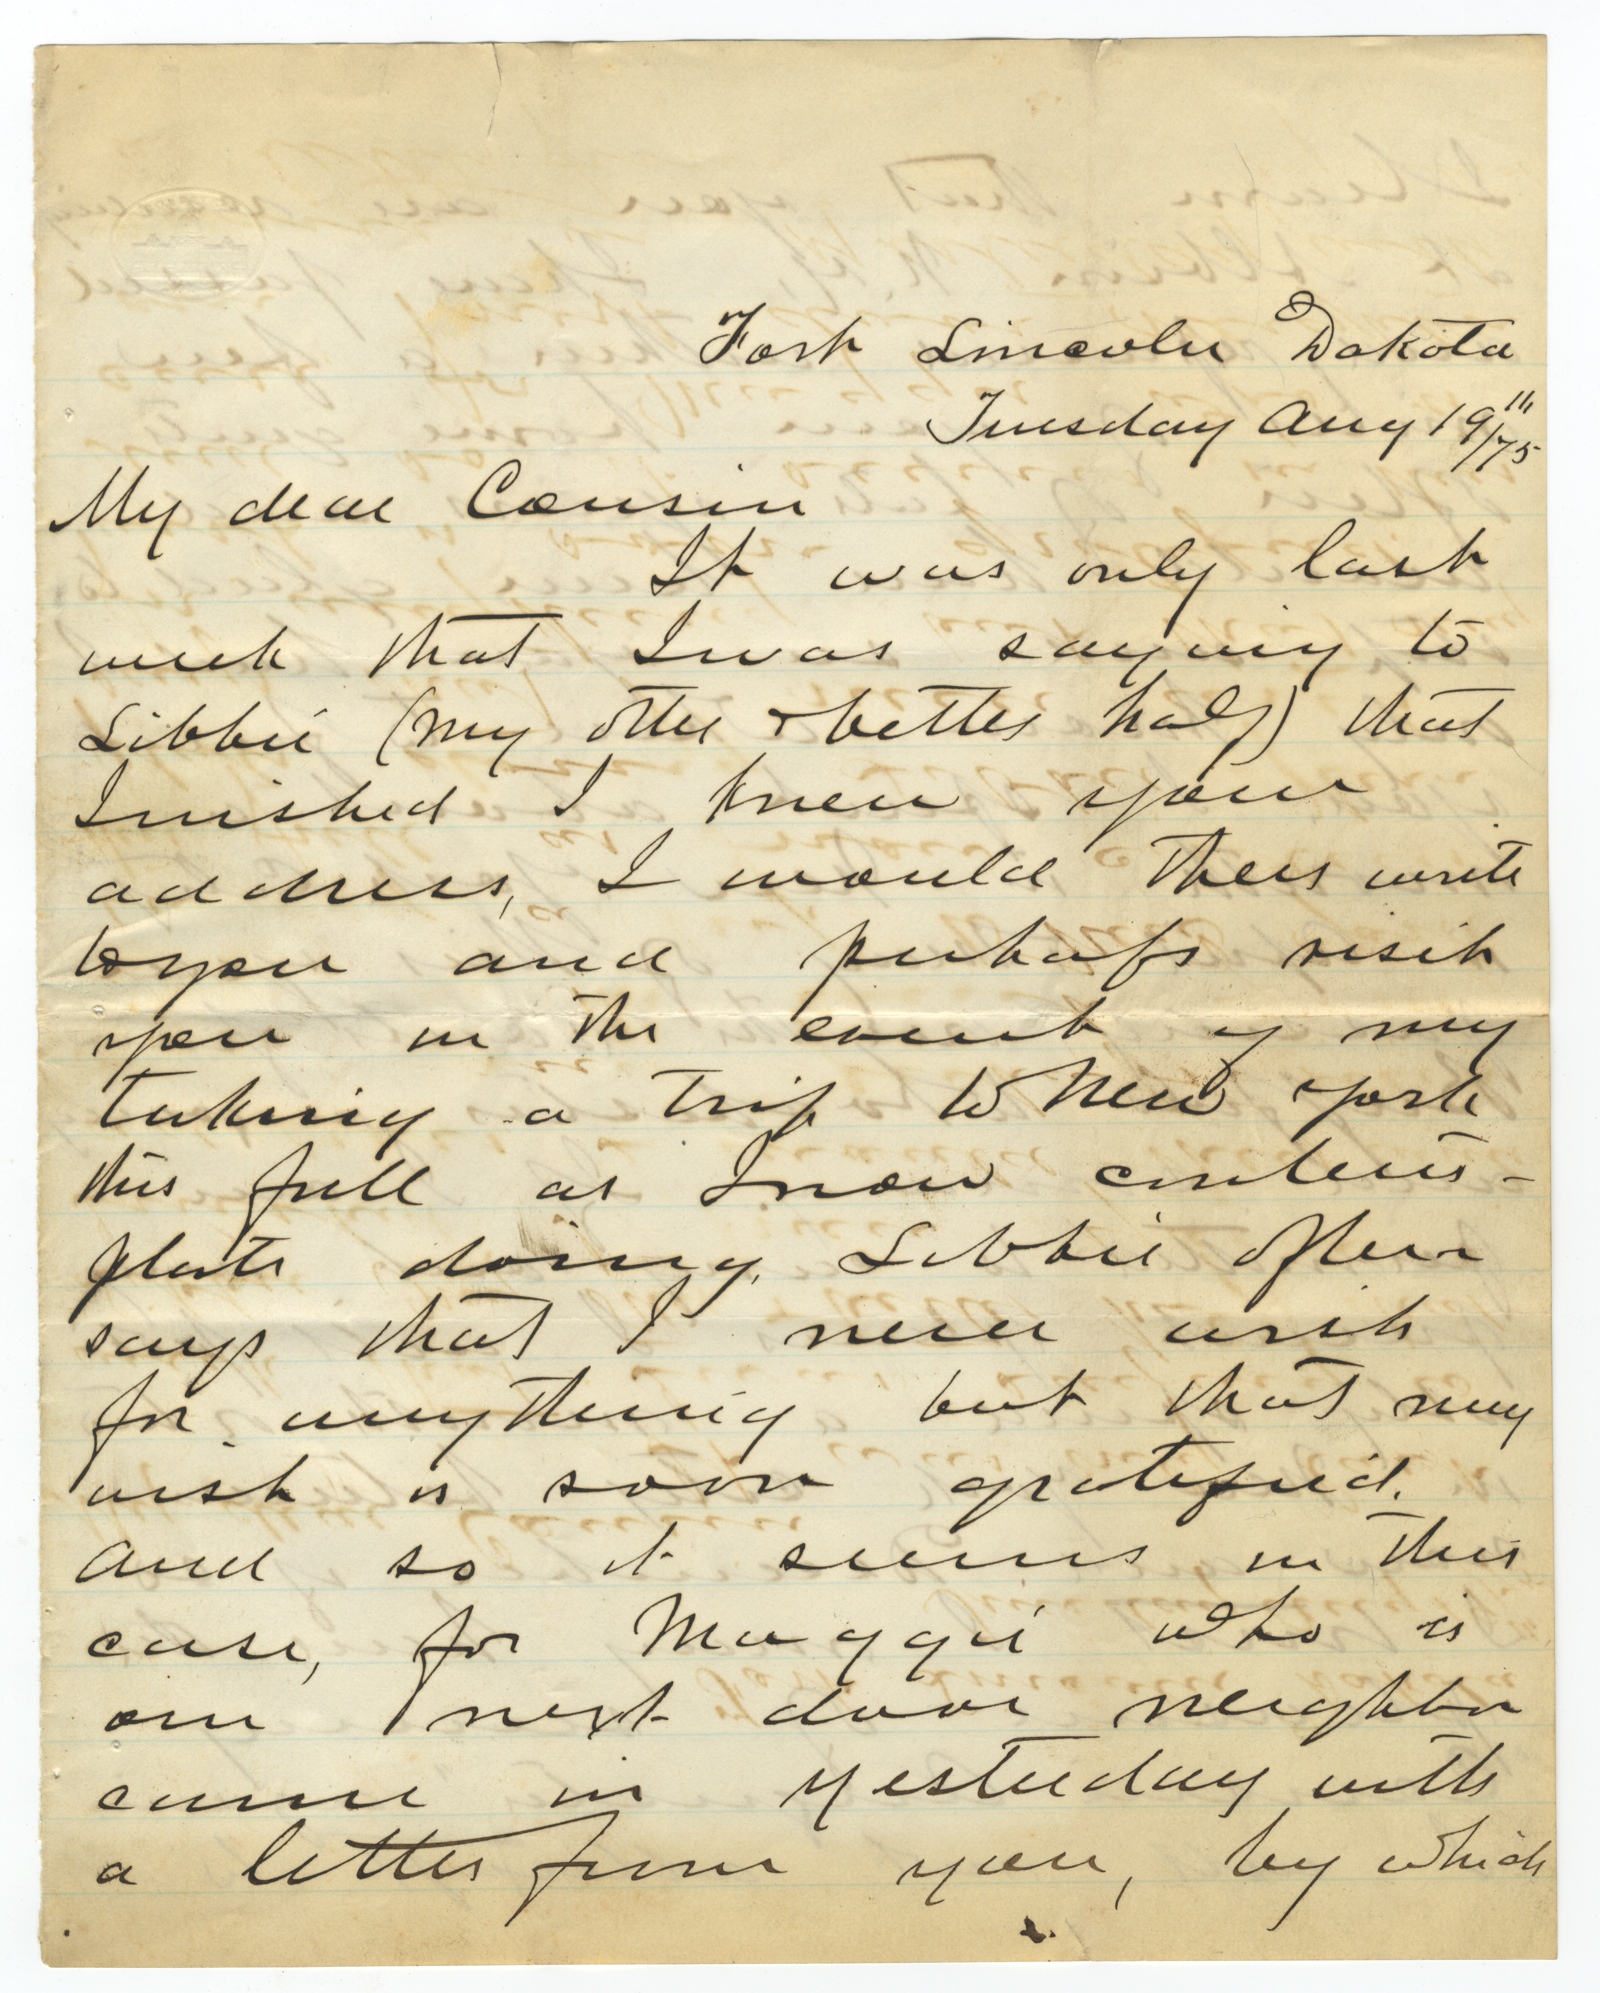 Fort Lincoln Dakota
Tuesday Aug 19th/75
My dear Cousin
It was only last
week that I was saying to
Libbie (my other & better half) that
I wished I knew your
address, I would then write
to you and perhaps visit
you in the event of my
taking a trip to New York
this fall as I now contem-
plate doing. Libbie often
says that I never wish
for anything but that my
wish is soon gratified.
And so it seems in this
case, for Maggie who is
our next door neighbor
came in yesterday with
a letter from you, by which